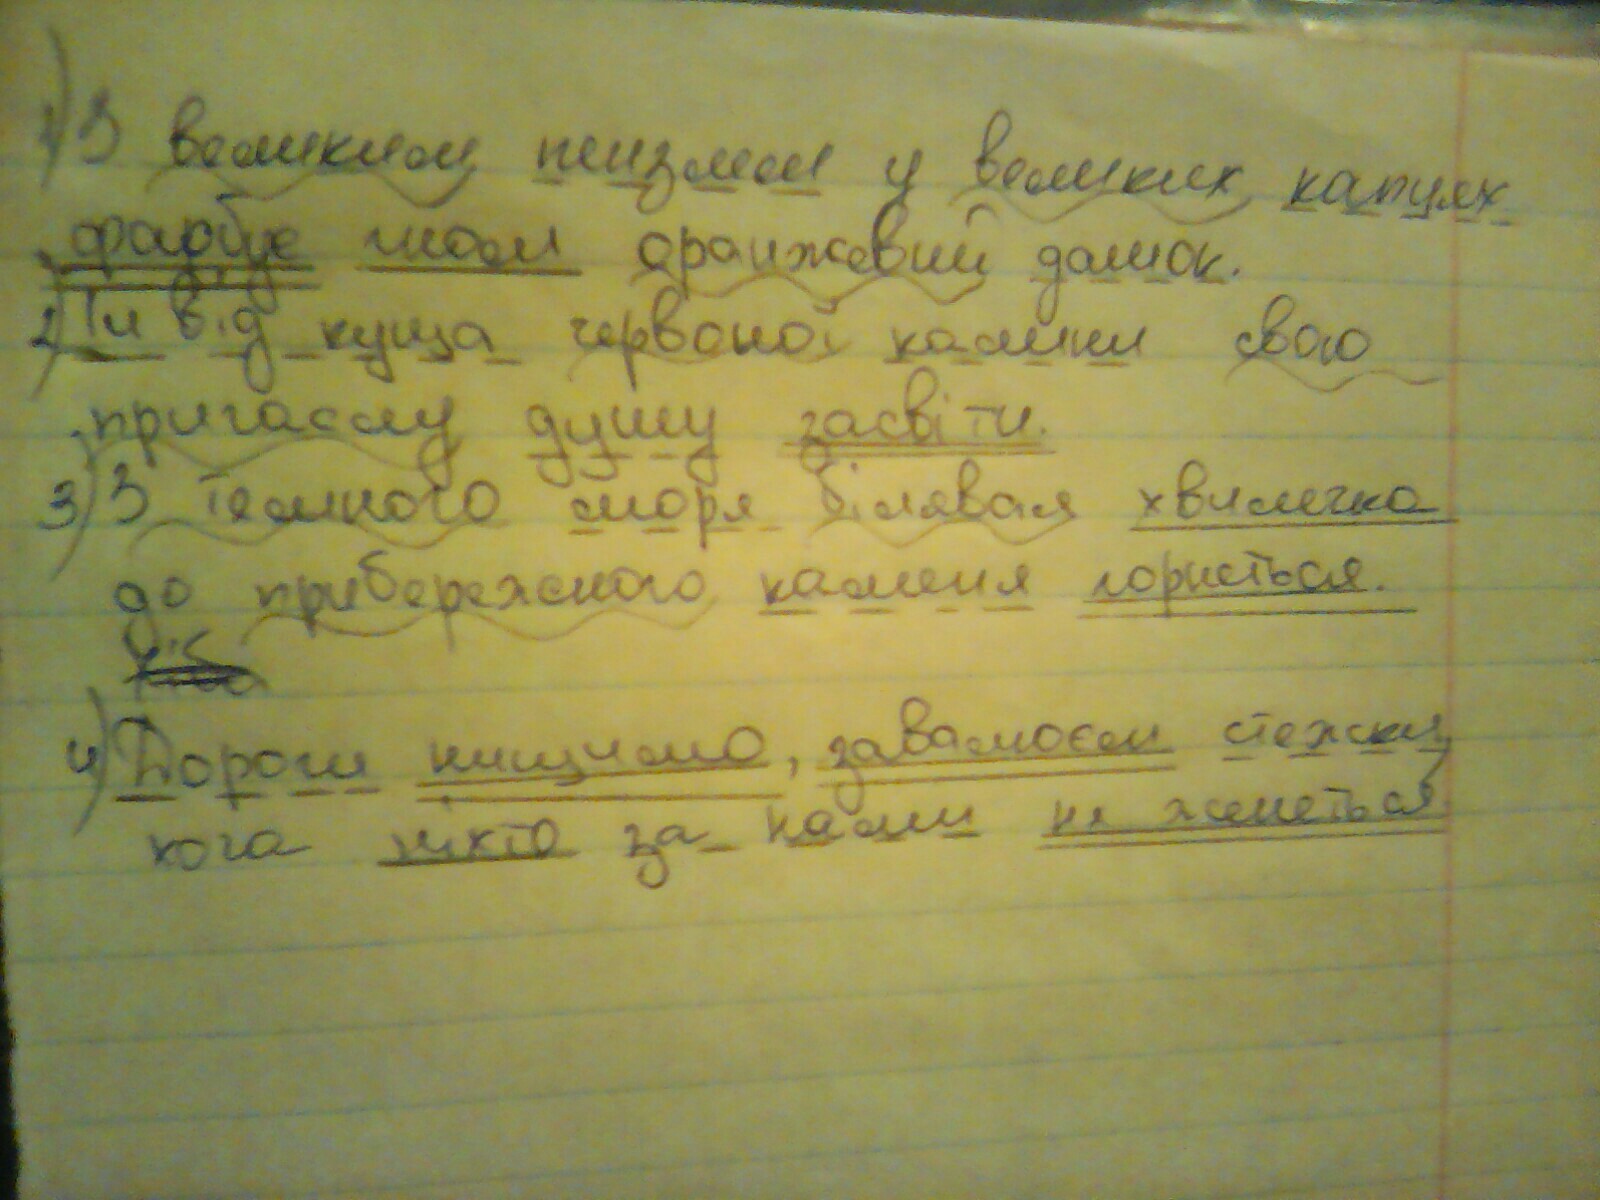 1) З великим пензлем у великих капцях
фарбує гном оранжевий дашок.
2) Ти від куща червоної калини свою
пригаслу душу засвіти.
3) З темного моря білявая хвилечка
до прибережного каменя горнеться.
4) Дороги нищимо, завалюєм стежки,
кога ніхто за нами не женеться.